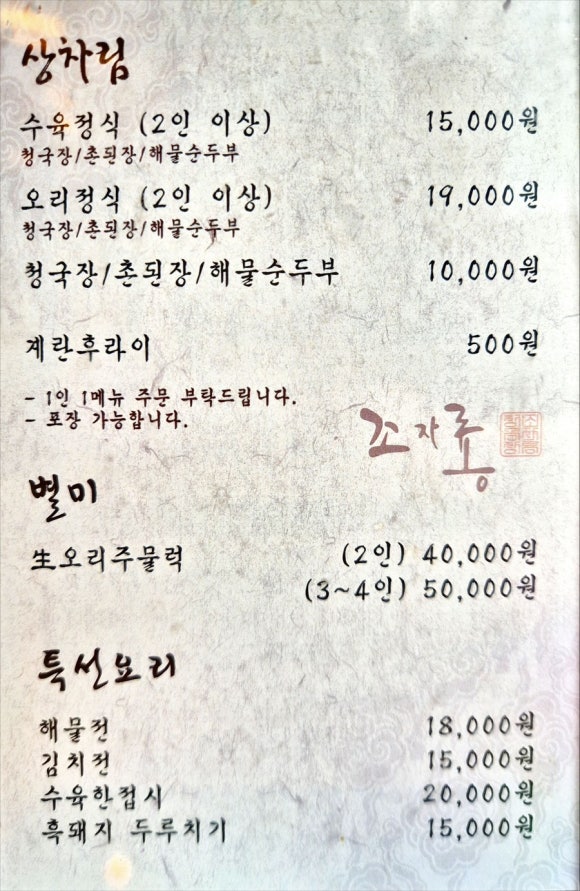 상차림
수육정식 (2인 이상) 15,000원
청국장/촌된장/해물순두부
오리정식 (2인 이상) 19,000원
청국장/촌된장/해물순두부
청국장/촌된장/해물순두부 10,000원
계란후라이 500원
- 1인 1메뉴 주문 부탁드립니다.
- 포장 가능합니다.
조자룡
별미
生오리주물럭 (2인) 40,000원
(3~4인) 50,000원
특선요리
해물전 18,000원
김치전 15,000원
수육한접시 20,000원
흑돼지 두루치기 15,000원